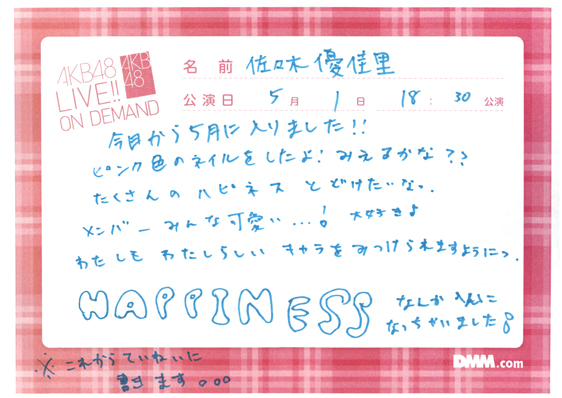 AKB48
LIVE!!
ON DEMAND
AKB
48
名 前 佐々木優佳里
公演日 5月 1日 18:30公演
今日から5月に入りました!!
ピンク色のネイルをしたよ! みえるかな??
たくさんのハピネス とどけたいなっ.
メンバーみんな可愛い...! 大好きよ
わたしも わたしらしい キャラをみつけられますようにっ.
HAPPINESS
なんか へんに
なっちゃいました
DMM.com
※これからていねいに
書きます。。。